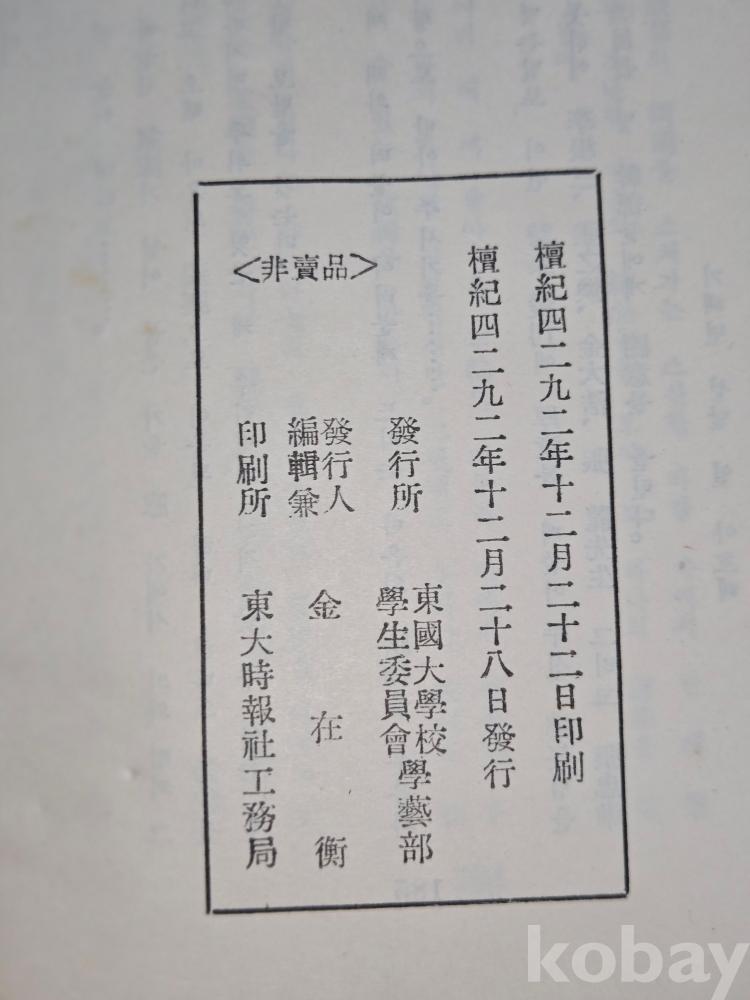 檀紀四二九二年十二月二十二日印刷
檀紀四二九二年十二月二十八日發行
發行所 東國大學校
學生委員會 學藝部
發行人
編輯兼 金在衡
印刷所 東大時報社工務局
<非賣品>
kobay